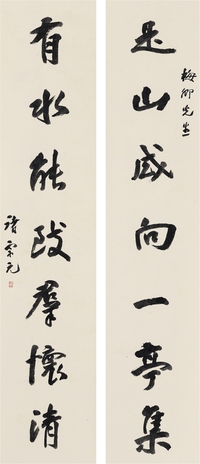 是山咸向一亭集
梅卿先生
有水能致群懷清
褚宗元